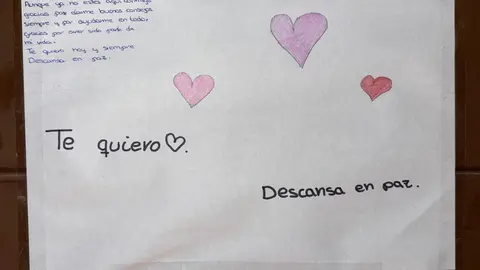 Aunque ya no estes aqui conmigo
gracias por darme buenos consejos
siempre y por ayudarme en todo.
gracias por aver sido parte de
mi vida.
Te quiero hoy y siempre
Descansa en paz.
Te quiero♡.
Descansa en paz.